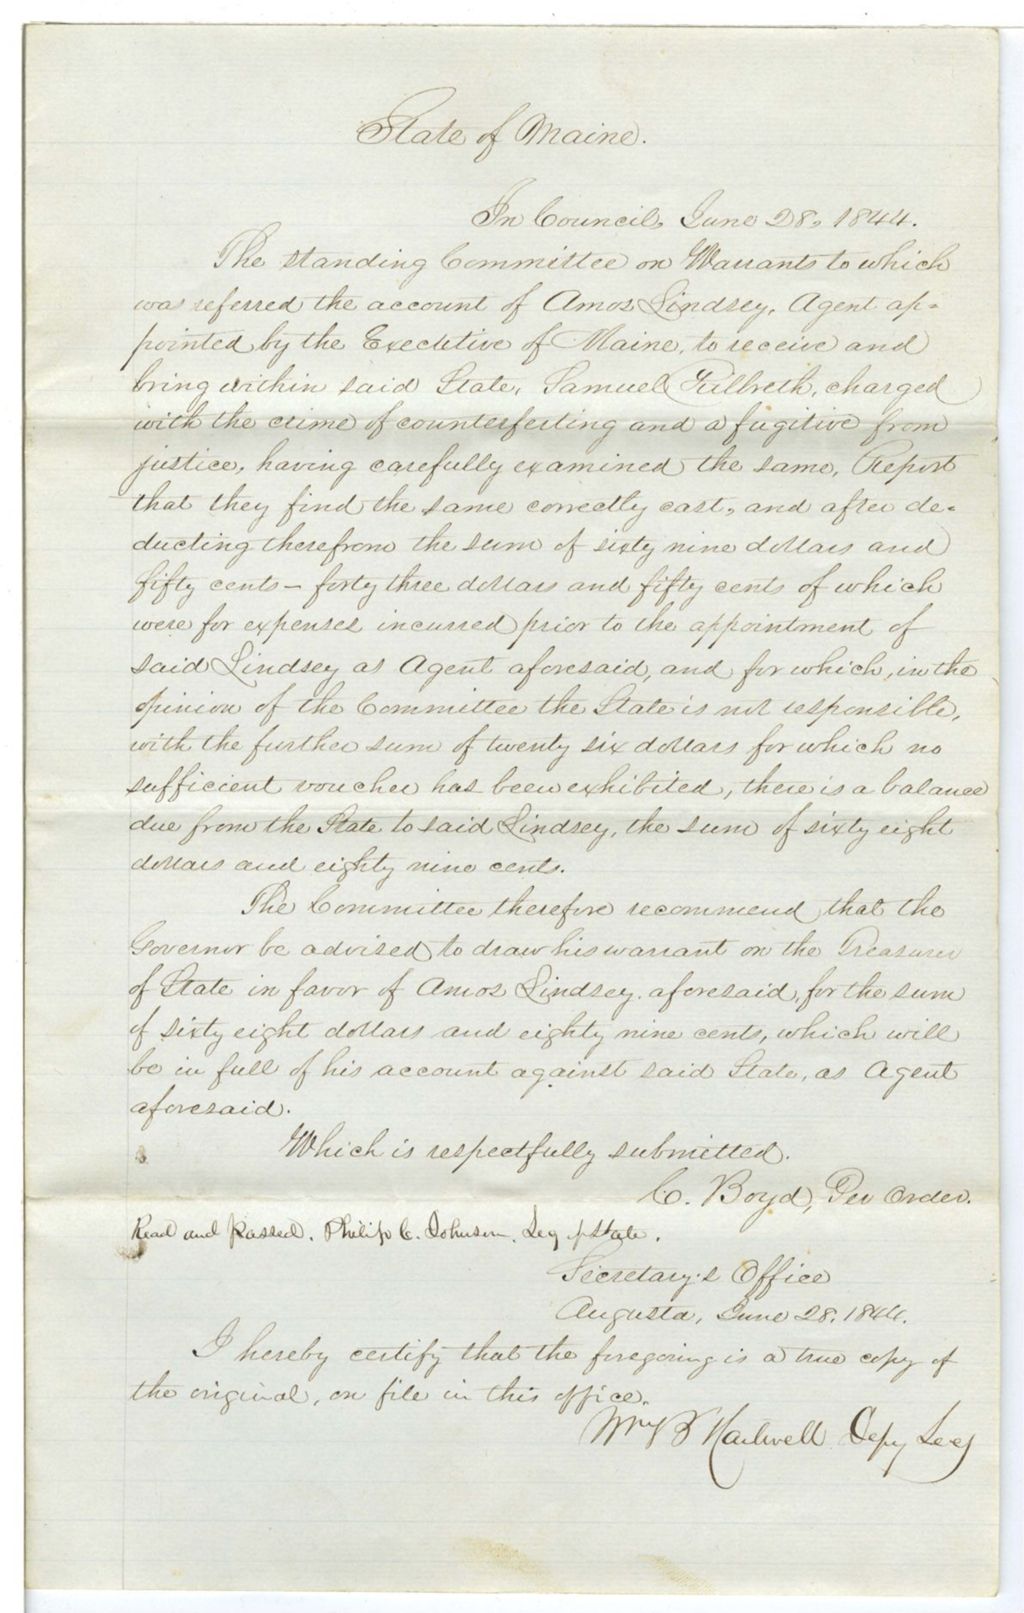 State of Maine.
In Council, June 28, 1844.
The standing Committee on Warrants to which
was referred the account of Amos Lindsey, Agent ap-
pointed by the Executive of Maine, to receive and
bring within said State, Samuel Fulbreth, charged
with the crime of counterfeiting and a fugitive from
justice, having carefully examined the same, Report
that they find the same correctly cast, and after de-
ducting therefrom the sum of sixty nine dollars and
fifty cents – forty three dollars and fifty cents of which
were for expenses incurred prior to the appointment of
said Lindsey as Agent aforesaid, and for which, in the
opinion of the Committee the State is not responsible,
with the further sum of twenty six dollars for which no
sufficient voucher has been exhibited, there is a balance
due from the State to said Lindsey, the sum of sixty eight
dollars and eighty nine cents.
The Committee therefore recommend that the
Governor be advised to draw his warrant on the Treasurer
of State in favor of Amos Lindsey aforesaid, for the sum
of sixty eight dollars and eighty nine cents, which will
be in full of his account against said State, as Agent
aforesaid.
Which is respectfully submitted.
C. Boyd, Per Order.
Read and passed. Philip C. Johnson. Sec. of State.
Secretary's Office
Augusta, June 28, 1844.
I hereby certify that the foregoing is a true copy of
the original, on file in this office.
Wm B Hartwell Depy Secy